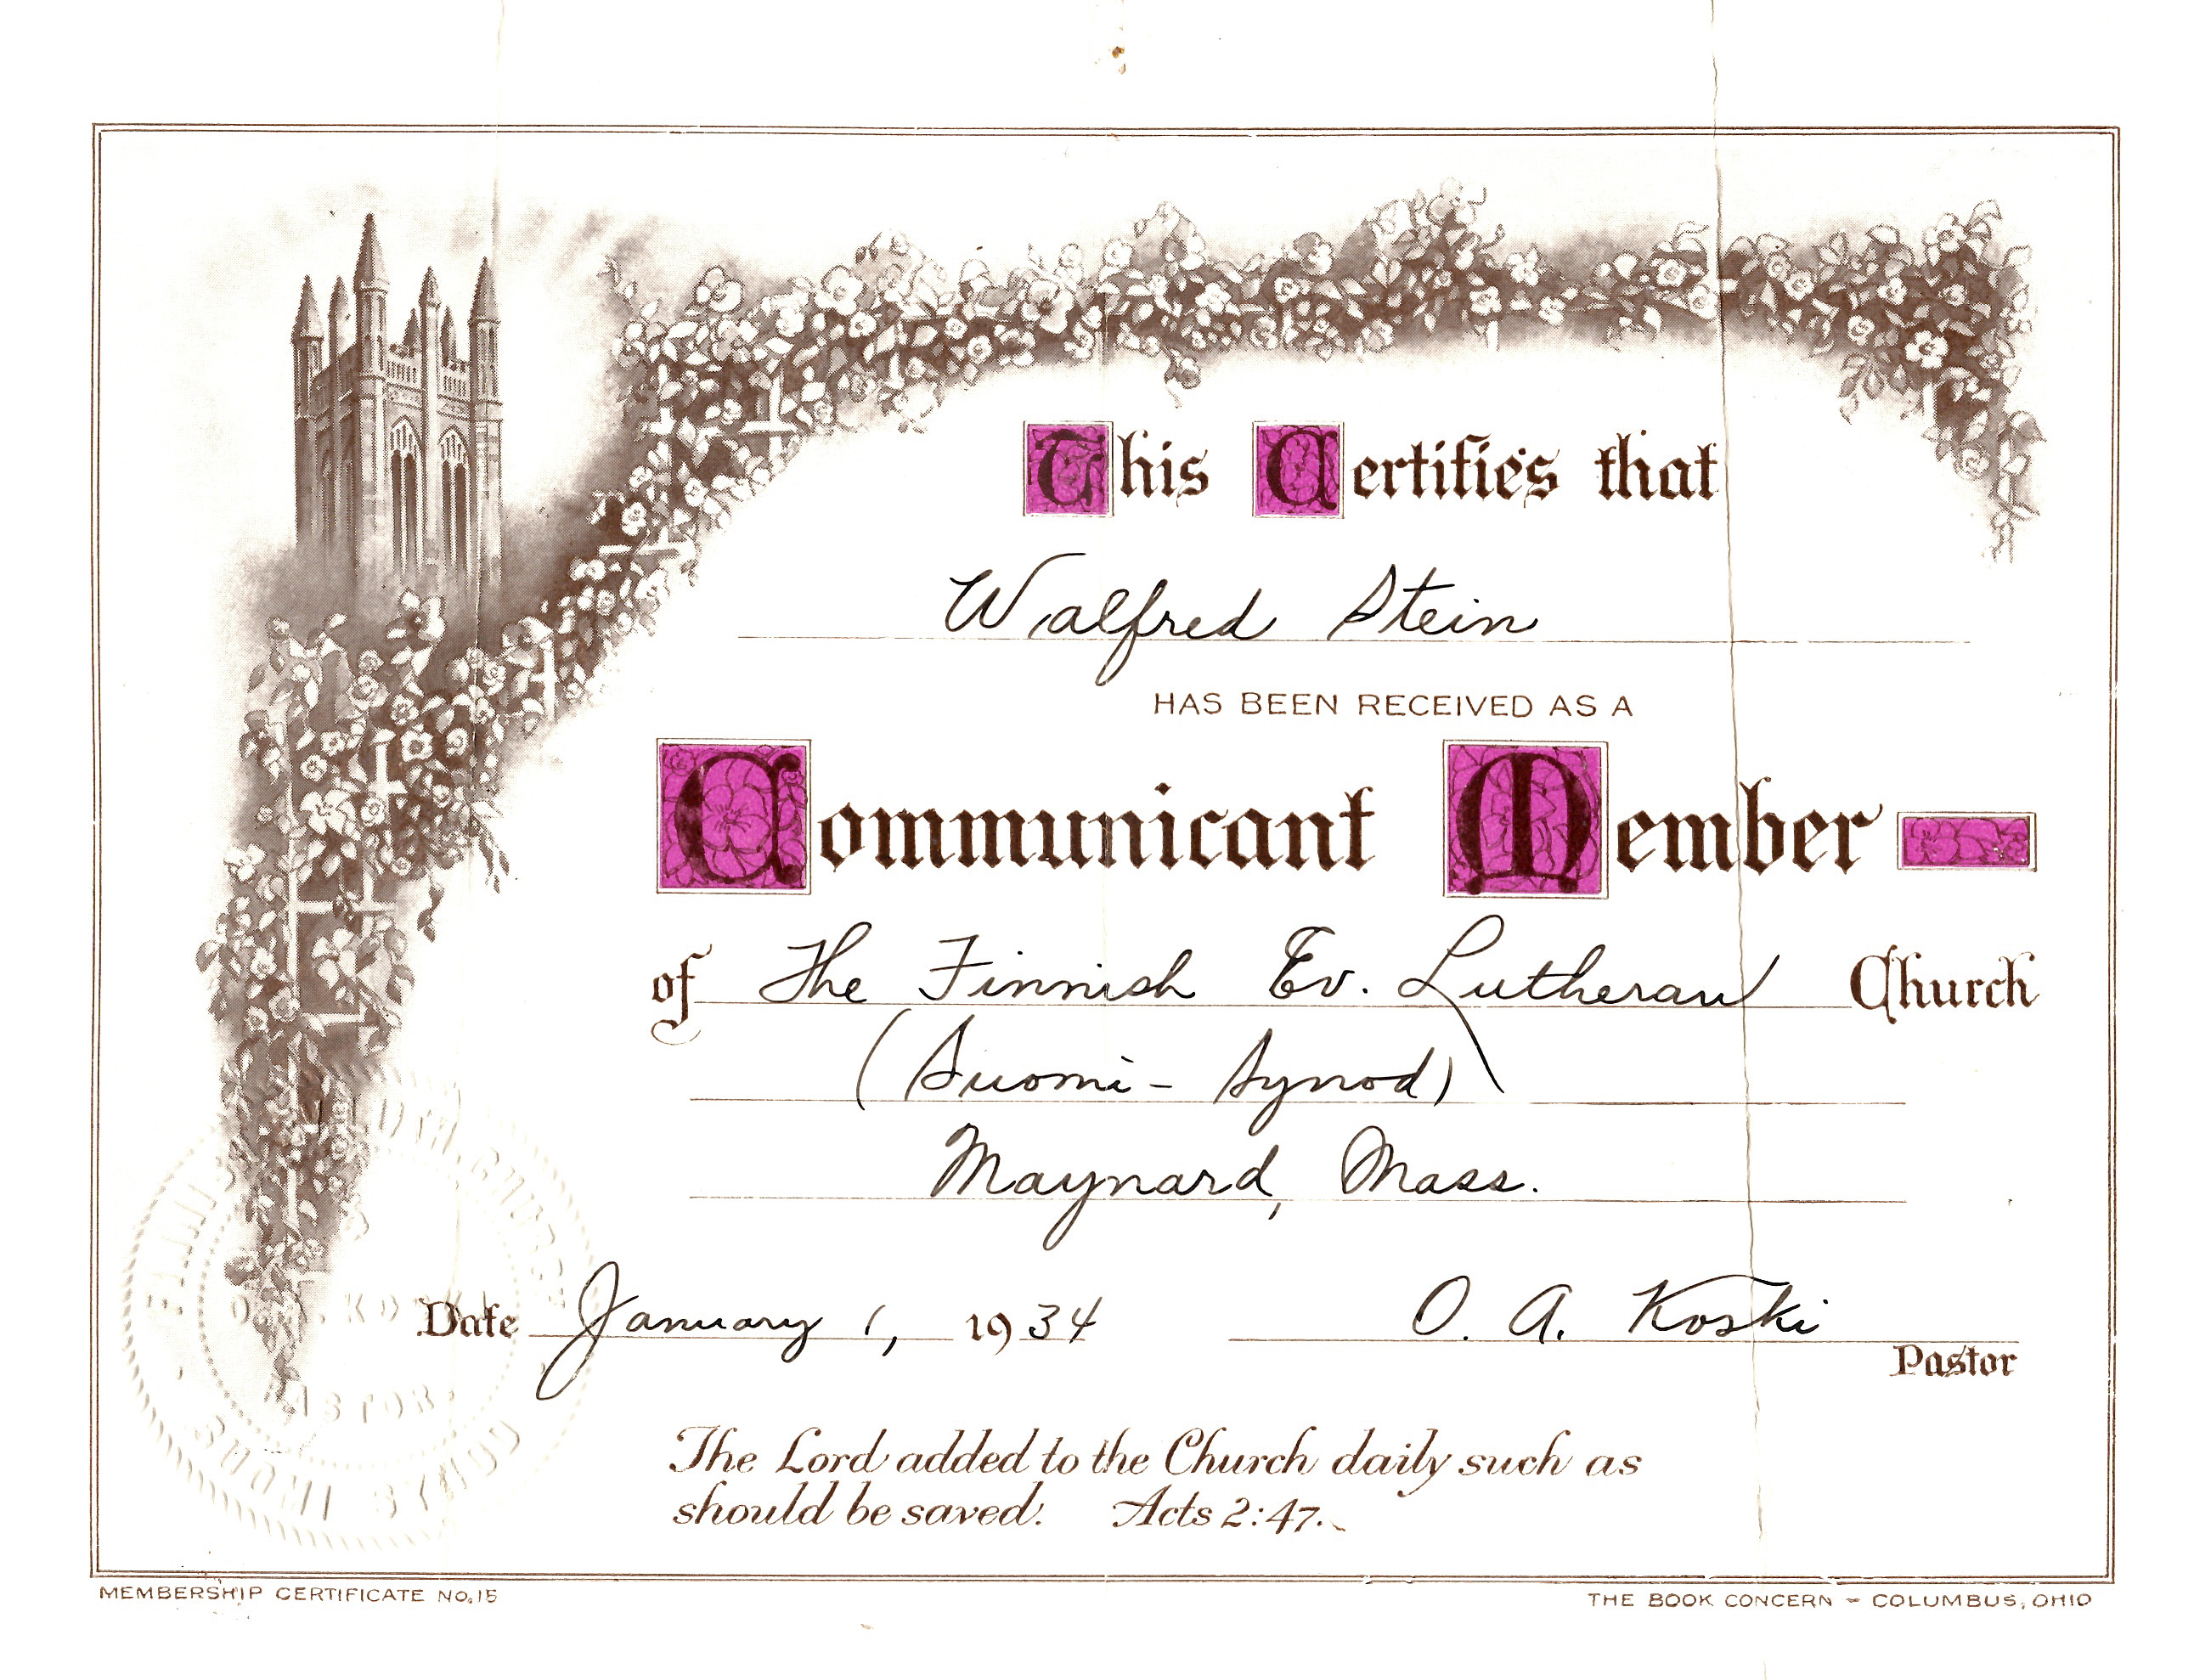 This Certifies that
Walfred Stein
HAS BEEN RECEIVED AS A
Communicant Member
of The Finnish Ev. Lutheran Church
(Suomi - Synod)
Maynard, Mass.
Date January 1, 1934 O. A. Koski
Pastor
The Lord added to the Church daily such as
should be saved. Acts 2:47.
MEMBERSHIP CERTIFICATE NO. 15
THE BOOK CONCERN - COLUMBUS, OHIO
PASTOR
SUOMI SYNOD